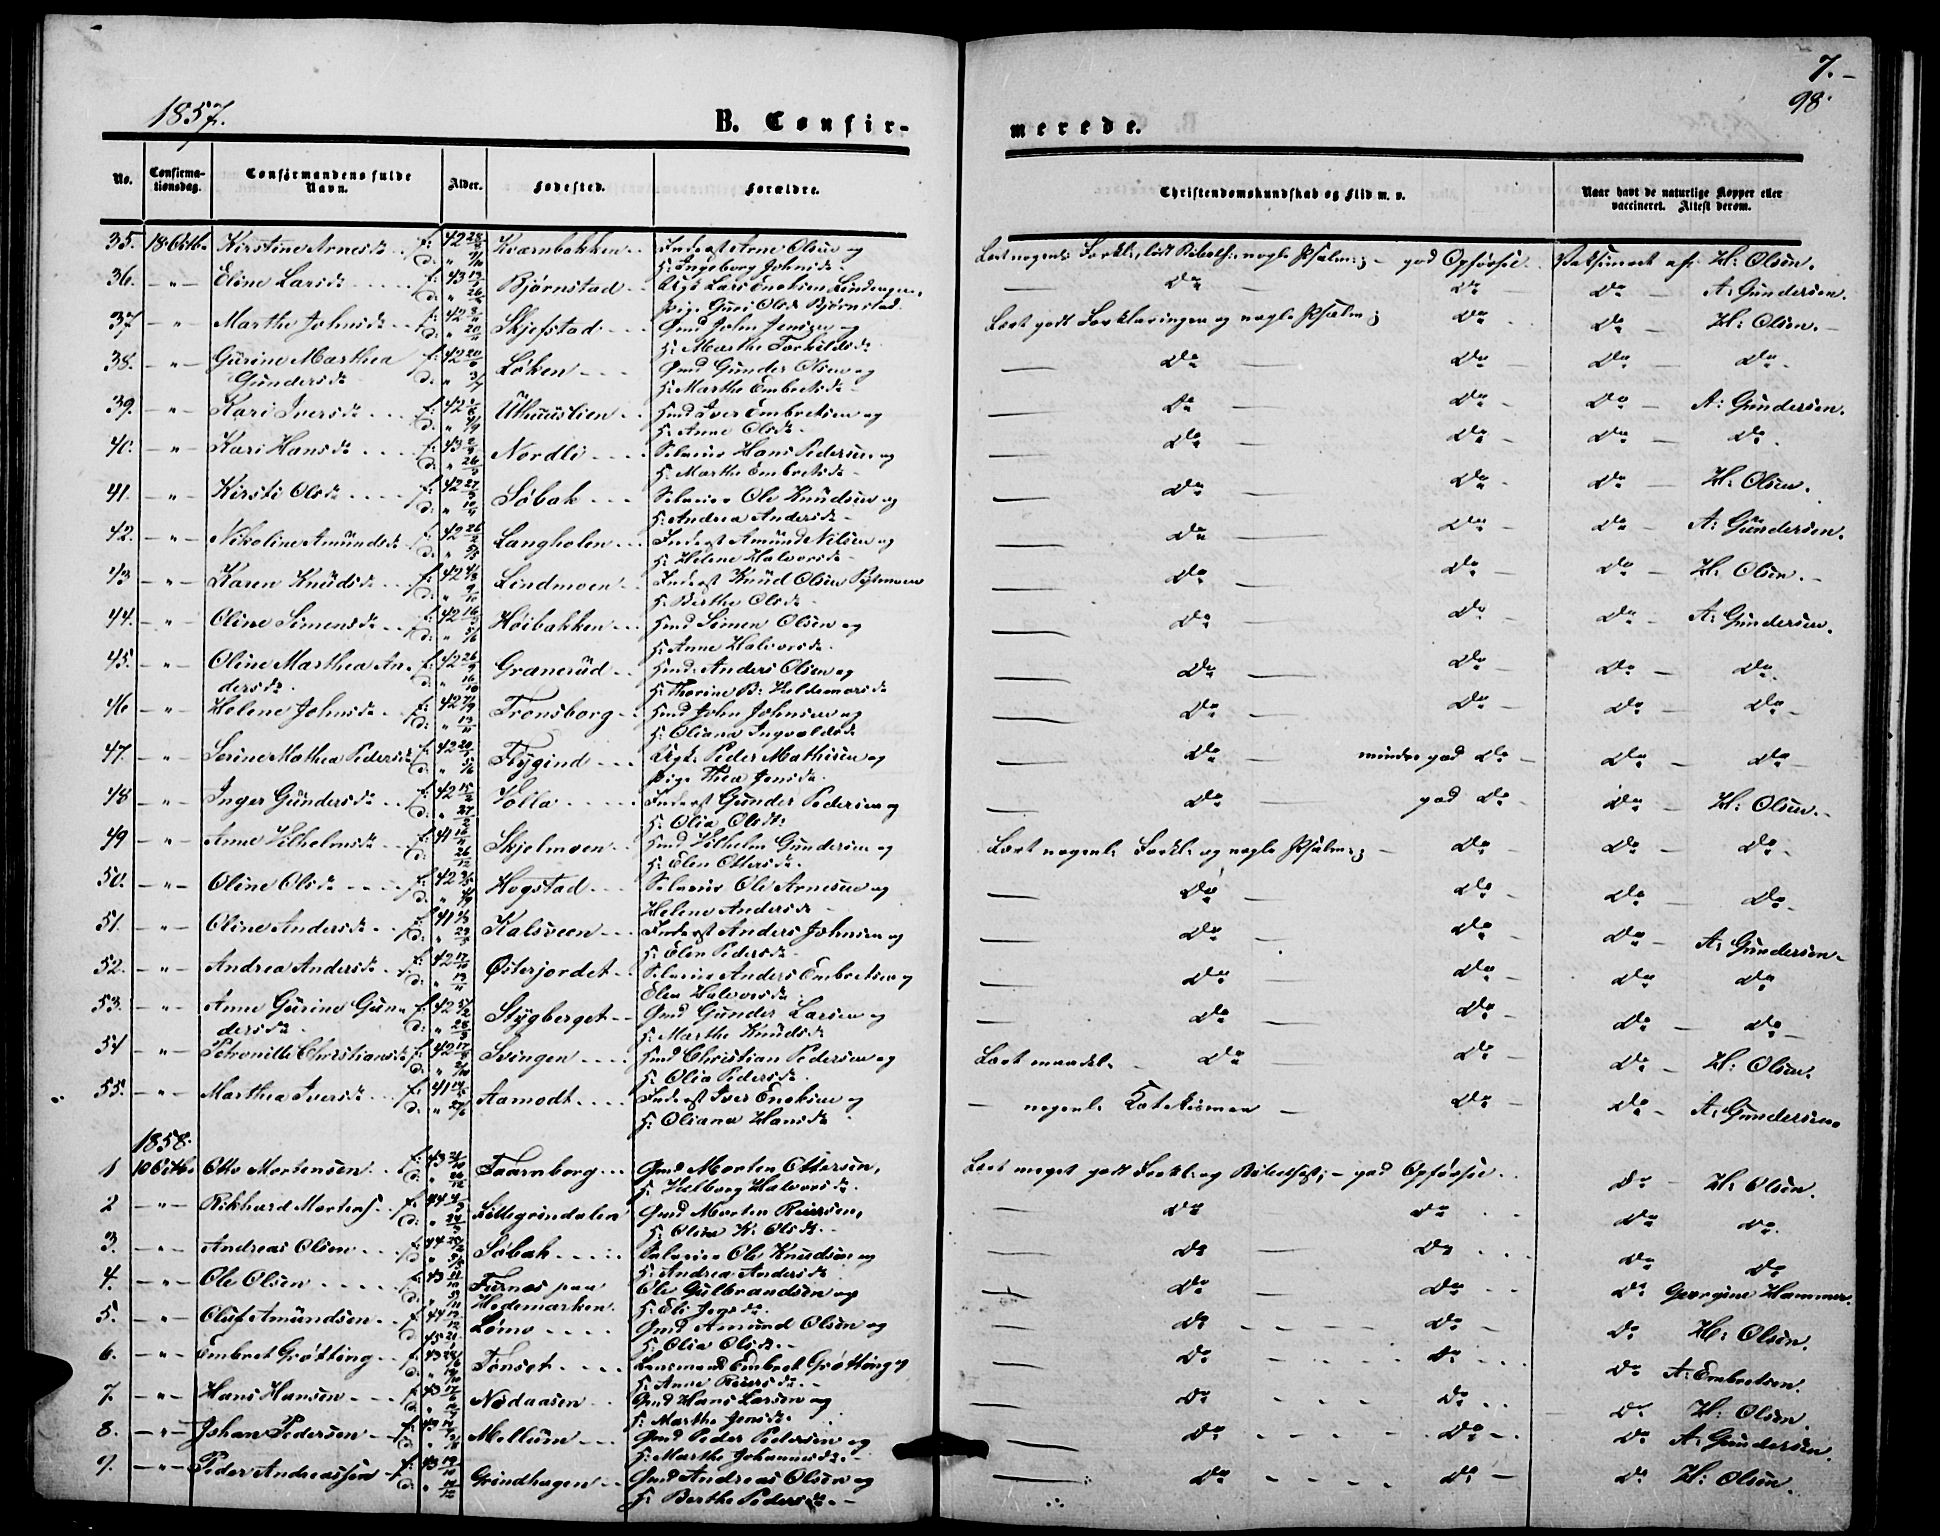 7.-
98.
1857.
B. Confir-
merede.
No. Confirma-tionsdag. Confirmandens fulde Navn. Alder. Fødested. Forældre. Christendomskundskab og Flid m. v. Naar havt de naturlige Kopper eller vaccineret. Attest derom.
35. 18. Octbr. Kirstine Arnesdr. f: 42 Kværnbakken Inderst Arne Olsen og H: Ingeborg Johnsdr. god Opførsel. H: Olsen.
36. -"- Eline Larsdr. f: 43 Bjørnstad Larsen Bjørnstad do do A: Gundersen.
37 -"- Marthe Johnsdr. f: 42 Skjefstad Gmd John Jensen og H: Marthe Torkildsdr. Lært godt Forklaringen og nogle Psalmer; do do H: Olsen.
38. -"- Gurine Marthea Gundersdr. f: 42 Løken Gmd Gunder Olsen og H: Marthe Embretsdr. do do do do
39. -"- Kari Iversdr. f: 42 Hmd Iver Embretsen og H: Anne Olsdr. do do do A: Gundersen.
40. -"- Kari Hansdr. f: 43 Nordli Selveier Hans Pedersen og H: Marthe Embretsdr. do do do do
41. -"- Kirsti Olsdr. f: 42 Søbak Selveier Ole Knudsen og H: Andrea Andersdr. do do do H: Olsen.
42. -"- Nikoline Amundsdr. f: 42 Langholen Inderst Amund Nilsen og H: Helene Halvorsdr. do do do A: Gundersen.
43 -"- Karen Knudsdr. f: 42 Lindmoen Inderst Knud Olsen H: Berthe Olsdr. do do do H: Olsen.
44. -"- Oline Simensdr. f: 42 Høibakken Hmd Simen Olsen og H: Anne Halvorsdr. do do do A: Gundersen.
45. -"- Oline Marthea Andersdr. f: 42 Granerud Hmd: Anders Olsen og H: Thorine B: do do do do
46 -"- Helene Johnsdr. f: 42 Tronsborg Hmd John Johnsen og H: Oliana Ingvaldsdr do do do do
47. -"- Serine Mathea Pedersdr f: 42 Flygind Ugk. Peder Mathisen og Pige Thea Jensdr. do mindre god do do do
48 -"- Inger Gundersdr. f: 42 Volla Inderst Gunder Pedersen og H: Olia Olsdr. do god do do H: Olsen.
49 -"- Anne Vilhelmsdr. f: 41 Skjelmoen Hmd Vilhelm Gundersen og H: Elen Ottersdr. Lært nogenl. Forkl: og nogle Psalmer; do do do
50. -"- Oline Olsdr. f: 42 Hogstad Selveier Ole Arnesen og Helene Andersdr. do do do do
51. -"- Oline Andersdr. f: 41 Kalsveen Inderst Anders Johnsen og H: Elen Pedersdr. do do do A: Gundersen.
52. -"- Andrea Andersdr. f: 42 Østerjordet Selveier Anders Embretsen og Elen Halvorsdr. do do do do
53. -"- Anne Gurine Gundersdr. f: 42 Stygberget Gmd Gunder Larsen og H: Marthe Knudsdr do do do do
54 -"- Petronille Christiansdr f: 42 Svingen Hmd Christian Pedersen og H: Olia Pedersdr. Lært maadel. do do do H: Olsen.
55. -"- Marthea Iversdr. f: 41 Aamodt Inderst Iver Enoksen og H: Oliana Hansdr nogenl. do do A: Gundersen.
1858.
1 10 Octbr. Otto Mortensen. f: 43 Taarnborg Gmd Morten Ottersen, H: Halvorsdr. Lært meget godt Forkl: og Bibelhist; - god Opførsel. do H: Olsen.
2 -"- Rikhard Mortens. f: 44 Lillegrindalen Gmd Morten Reiersen, H: Oline K: Olsdr. do do do do
3. -"- Andreas Olsen f: 44 Søbak Selveier Ole Knudsen og H: Andrea Andersdr do do do do
4. -"- Ole Olsen f: 43 Furnæs paa Hedemarken. Ole Gulbrandsen og H: Eli do do do Georgine Hammer.
5. -"- Oluf Amundsen f: 44 Lømo Gmd Amund Olsen og H: Olea Olsdr. do do do H: Olsen.
6. -"- Embret Grøtting f: 43 Tønset Lensmand Embret Grøtting og H: Anne Reiersdr. do do do A: Embretsen.
7. -"- Hans Hansen f: 43 Nødaasen Gmd Hans Larsen og H: Marthe Jensdr. do do do H: Olsen.
8. -"- Johan Pedersen f: Mellum Gmd Peder Pedersen og H: Marthe Johannesdr. do do do A: Gundersen.
9. -"- Peder Andreassen f: 43 Grindhagen Gmd Andreas Olsen og H: Berthe Pedersdr. do do do H: Olsen.